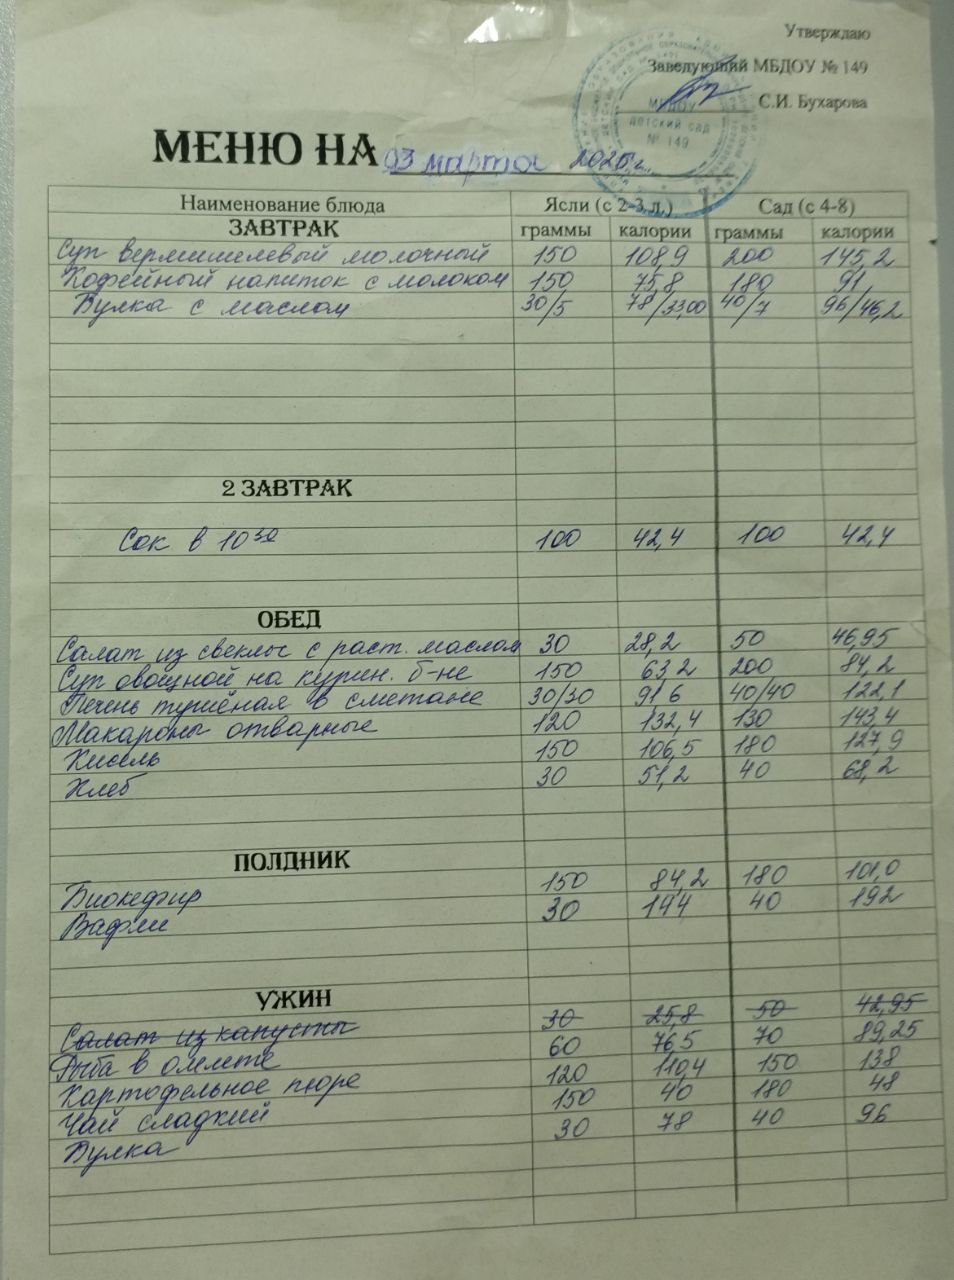 Утверждаю
Заведующий МБДОУ № 149
С.И. Бухарова
МБДОУ
ДЕТСКИЙ САД
№ 149
МЕНЮ НА 03 марта 2025 г.
Наименование блюда Ясли (с 2-3 л.) Сад (с 4-8)
ЗАВТРАК граммы калории граммы калории
Суп вермишелевый молочный 150 108,9 200 145,2
Кофейный напиток с молоком 150 75,8 180 91
Булка с маслом 30/5 78/33,00 40/7 96/46,2
2 ЗАВТРАК
Сок в 10 30 100 42,4 100 42,4
ОБЕД
Салат из свеклы с раст. маслом 30 28,2 50 46,95
Суп овощной на курин. б-не 150 63,2 200 84,2
Печень тушёная в сметане 30/30 91 6 40/40 122,1
Макароны отварные 120 132,4 130 143,4
Кисель 150 106,5 180 127,9
Хлеб 30 51,2 40 68,2
ПОЛДНИК
Биокефир 150 84,2 180 101,0
Вафли 30 144 40 192
УЖИН
Салат из капусты 30 25,8 50 42,95
Рыба в омлете 60 76,5 70 89,25
Картофельное пюре 120 110,4 150 138
Чай сладкий 150 40 180 48
Булка 30 78 40 96